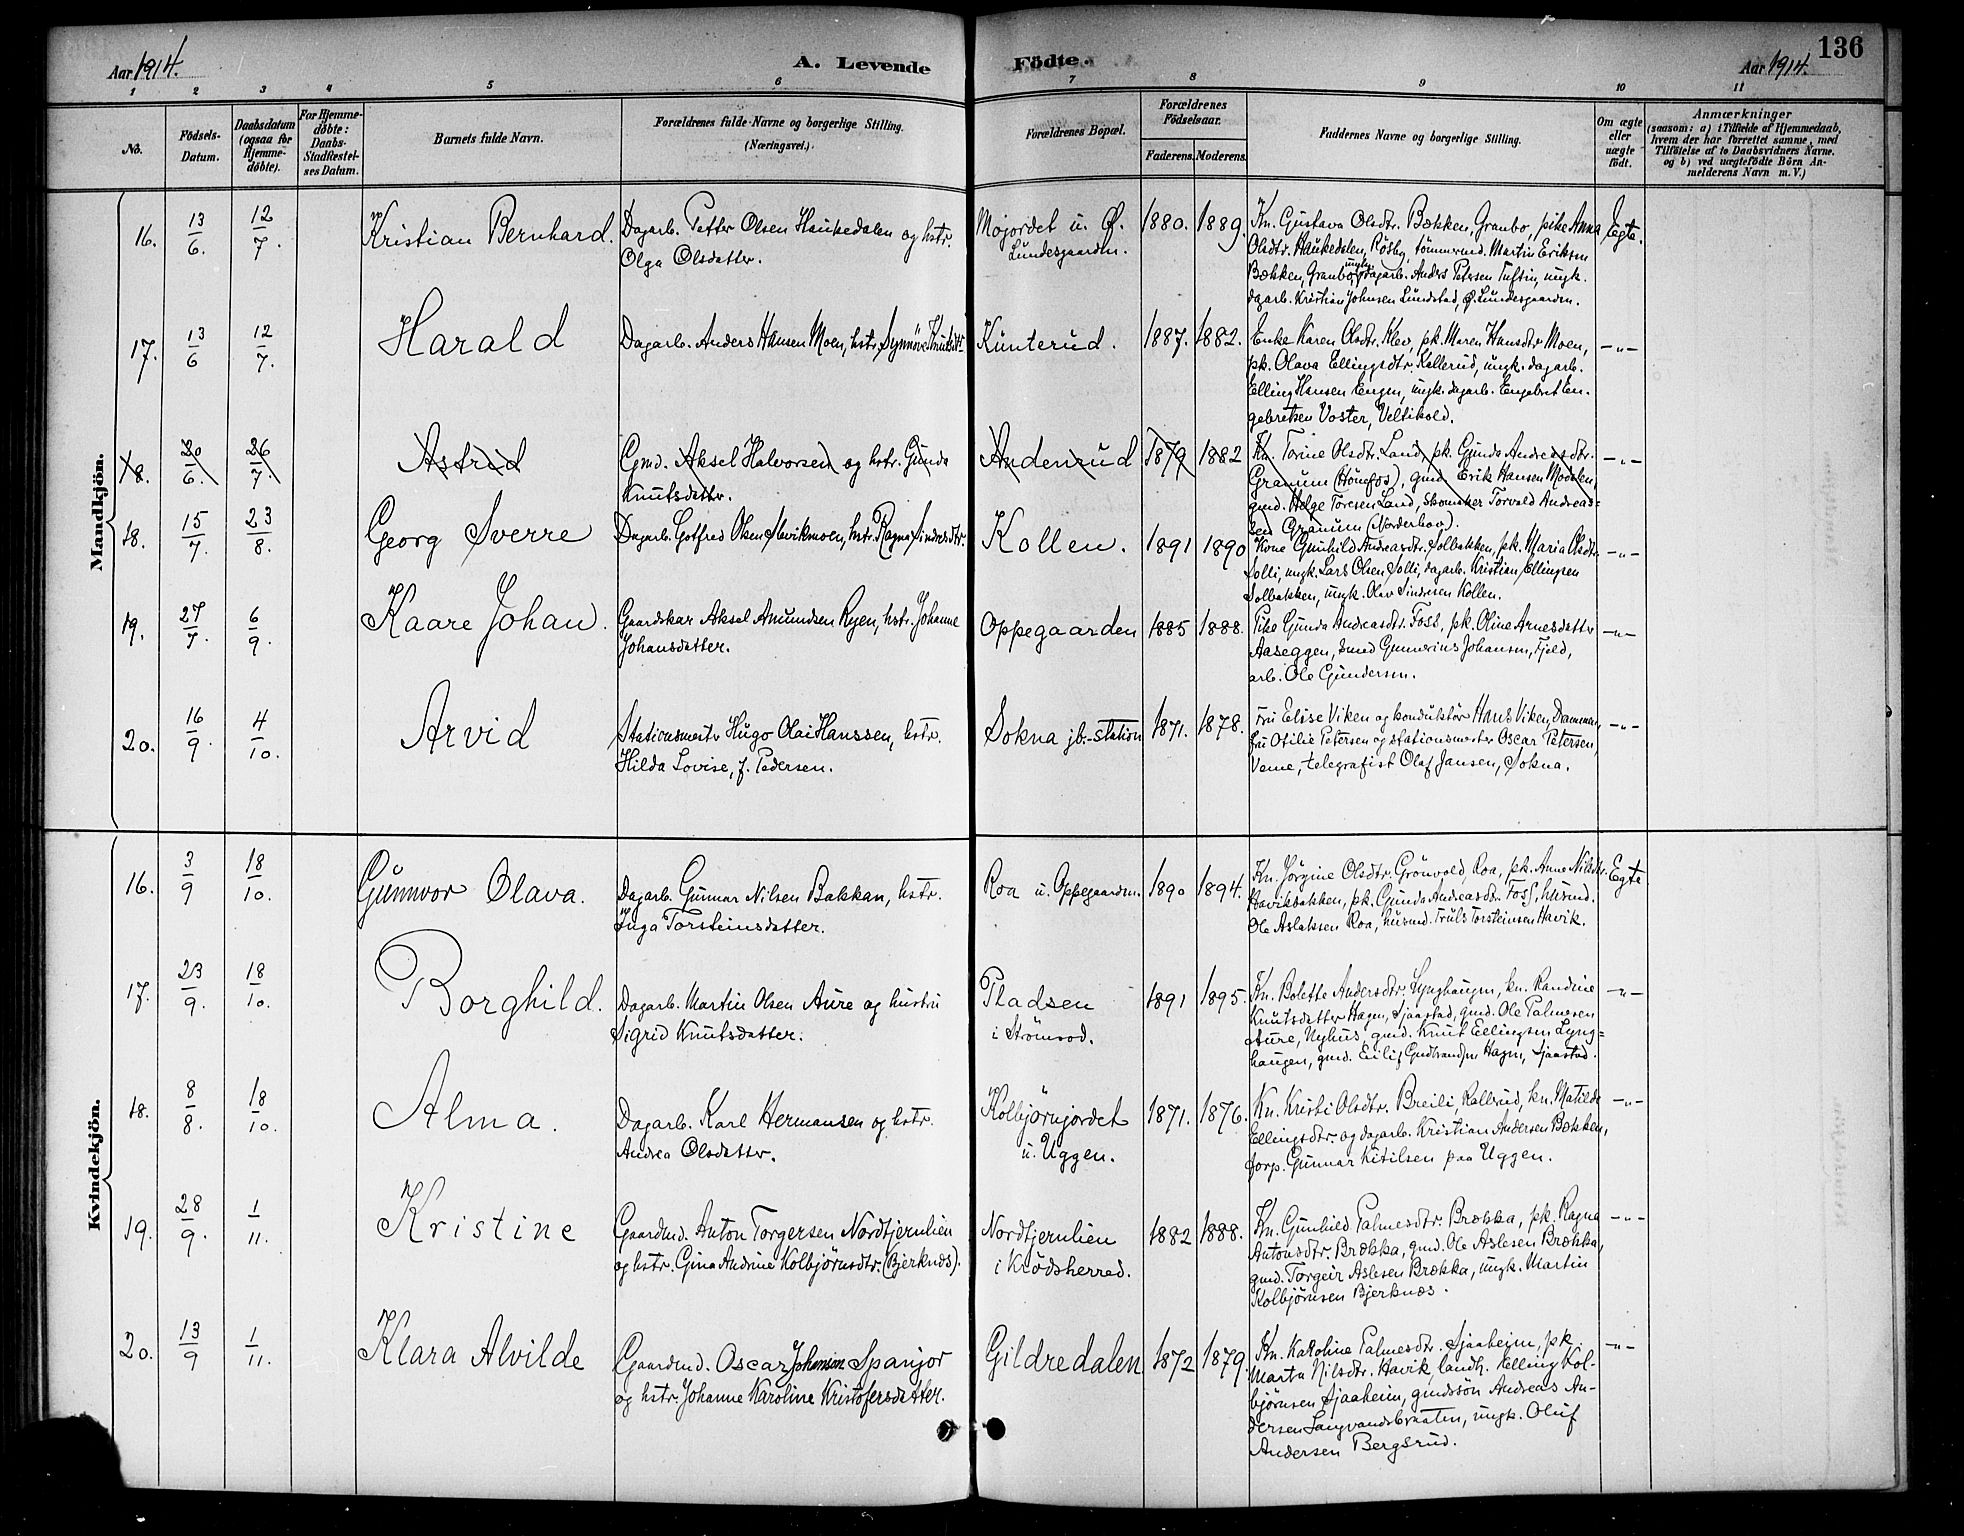 136
Aar 1914.
A. Levende
Födte.
Aar 1914.
1 2 3 4 5 6 7 8 9 10 11
No.
Födsels-
Datum.
Daabsdatum
(ogsaa for
Hjemme-
døbte).
For Hjemme-
døbte:
Daabs-
Stadfæstel-
ses Datum.
Barnets fulde Navn.
Forældrenes fulde Navne og borgerlige Stilling.
(Næringsvei.)
Forældrenes Bopæl.
Forældrenes
Födselsaar.
Faderens. Moderens.
Faddernes Navne og borgerlige Stilling.
Om ægte
eller
uægte
födt.
Anmærkninger
(saasom: a) i Tilfælde af Hjemmedaab,
hvem der har forrettet samme, med
Tilföielse af to Daabsvidners Navne.
og b) ved uægtefödte Börn An-
melderens Navn m. V.)
Mandkjön.
16. 13/6. 12/7. Kristian Bernhard.
Dagarb. Petter Olsen Haukedalen og hstr.
Olga Olsdatter.
Mojordet u. Ø.
Lundesgaarden.
1880. 1889.
Kn. Gustava Olsdtr. Bækken, Granbo, pike Anna
Olsdtr. Haukedalen, Rosby, tömmermd. Martin Eriksen
Bækken, Granbo, ungk. dagarb. Anders Petersen Tuftin, ungk.
dagarb. Kristian Johnsen Lundstad, Ø. Lundesgaarden.
Egte.
17. 13/6 12/7. Harald
Dagarb. Anders Hansen Moen, hstr. Synnöve Knutsdtr
Kunterud.
1887. 1882.
Enke Karen Olsdtr. Klev, pk. Maren Hansdtr Moen,
pk. Olava Ellingsdtr. Kallerud, ungk. dagarb.
Elling Hansen Engen, ungk. dagarb. Engebret En-
gebretsen Voster, Veltikold.
-"-
18. 20/6. 26/7. Astrid
Gmd. Aksel Halvorsen og hstr. Gunda
Knutsdattr.
Andenrud
1879 1882
Kn. Torine Olsdtr. Land, pk. Gunda Andreasdtr.
Granum (Hönefos), gmd. Erik Hansen Modalen,
gmd. Helge Toresen Land, skomaker Torvald Andreas-
sen Granum (Norderhov).
-"-
18. 15/7. 23/8. Georg Sverre
Dagarb. Gotfred Olsen Mevikmoen, hstr. Ragna Sindresdtr.
Kollen.
1891 1890
Kone Gunhild Andreasdtr. Solbakken, pk. Maria Olsdtr.
Solli, ungk. Lars Olsen Solli, dagarb. Kristian Ellingsen
Solbakken, ungk. Olav Sindresen Kollen.
-"-
19. 27/7. 6/9. Kaare Johan.
Gaardskar Aksel Amundsen Ryen, hstr. Johanne
Johansdatter.
Oppegaarden
1885 1888.
Pike Gunda Andreasdtr. Foss, pk. Oline Arnesdatter
Aaseggen, smed Gunnerius Johansen, Fjeld,
arb. Ole Gundersen.
-"-
20. 16/9. 4/10. Arvid
Stationsmestr Hugo Olai Hanssen, hstr.
Hilda Lovise, f. Pedersen.
Sokna jb.-station
1871. 1878.
Fru Elise Viken og konduktör Hans Viken, Drammen,
fru Otilie Petersen og stationsmester Oscar Petersen,
Veme, telegrafist Olaf Jansen, Sokna.
-"-
Kvindekjön.
16. 3/9 18/10. Gunnvor Olava.
Dagarb. Gunnar Nilsen Bakkan, hstr.
Inga Torsteinsdatter.
Roa u. Oppegaarden.
1890 1894.
Kn. Jörgine Olsdtr. Grönvold, Roa, pk. Anne Nilsdtr.
Haviksbakken, pk. Gunda Andreasdtr Foss, husmd.
Ole Aslaksen Roa, husmd. Truls Torsteinsen Havik.
Egte
17. 23/9. 18/10. Borghild.
Dagarb. Martin Olsen Aure og hustru
Sigrid Knutsdatter.
Pladsen
i Strömsod.
1891 1895.
Kn. Bolette Andersdtr. Lynghaugen, kn. Randine
Knutsdatter Hagen, Sjaastad, gmd. Ole Palmesen
Aure, Nyhus, gmd. Knut Ellingsen Lyng-
haugen, gmd. Eilif Gudbrandsen Hagen, Sjaastad.
-"-
18. 8/8. 18/10. Alma.
Dagarb. Karl Hermansen og hstr.
Andrea Olsdatter.
Kolbjörnjordet
u. Uggen.
1871. 1876.
Kn. Kristi Olsdtr. Breili, Rallerud, kn. Matilde
Ellingsdtr. og dagarb. Kristian Andersen Bækken,
forp. Gunnar Kitilsen paa Uggen.
-"-
19. 28/9. 1/11. Kristine
Gaardmd. Anton Torgersen Nordtjernlien
og hstr. Gina Andrine Kolbjörnsdtr. (Bjerknæs).
Nordtjernlien
i Krödsherred.
1882 1888.
Kn. Gunhild Palmesdtr. Brækka, pk. Ragna
Antonsdtr. Brækka, gmd. Ole Aslesen Brækka,
gmd. Torgeir Aslesen Brækka, ungk. Martin
Kolbjörnsen Bjerknæs.
-"-
20. 13/9 1/11. Klara Alvilde
Gaardmd. Oscar Johansen Spanjor
og hstr. Johanne Karoline Kristofersdatter.
Gildredalen
1872 1879.
Kn. Karoline Palmesdtr. Sjaaheim, pk
Marta Nilsdtr. Havik, landh. Elling Kol-
björnsen Sjaaheim, gmdssön Andreas An-
dersen Langvandsbraaten, ungk. Oluf
Andersen Bergsrud.
-"-